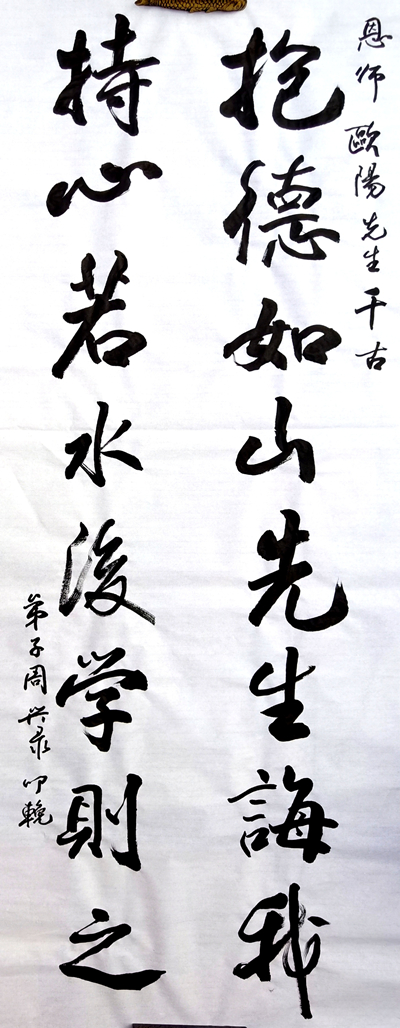 恩师歐陽先生千古
抱德如山先生誨我
持心若水後学則之
弟子周兴录叩輓